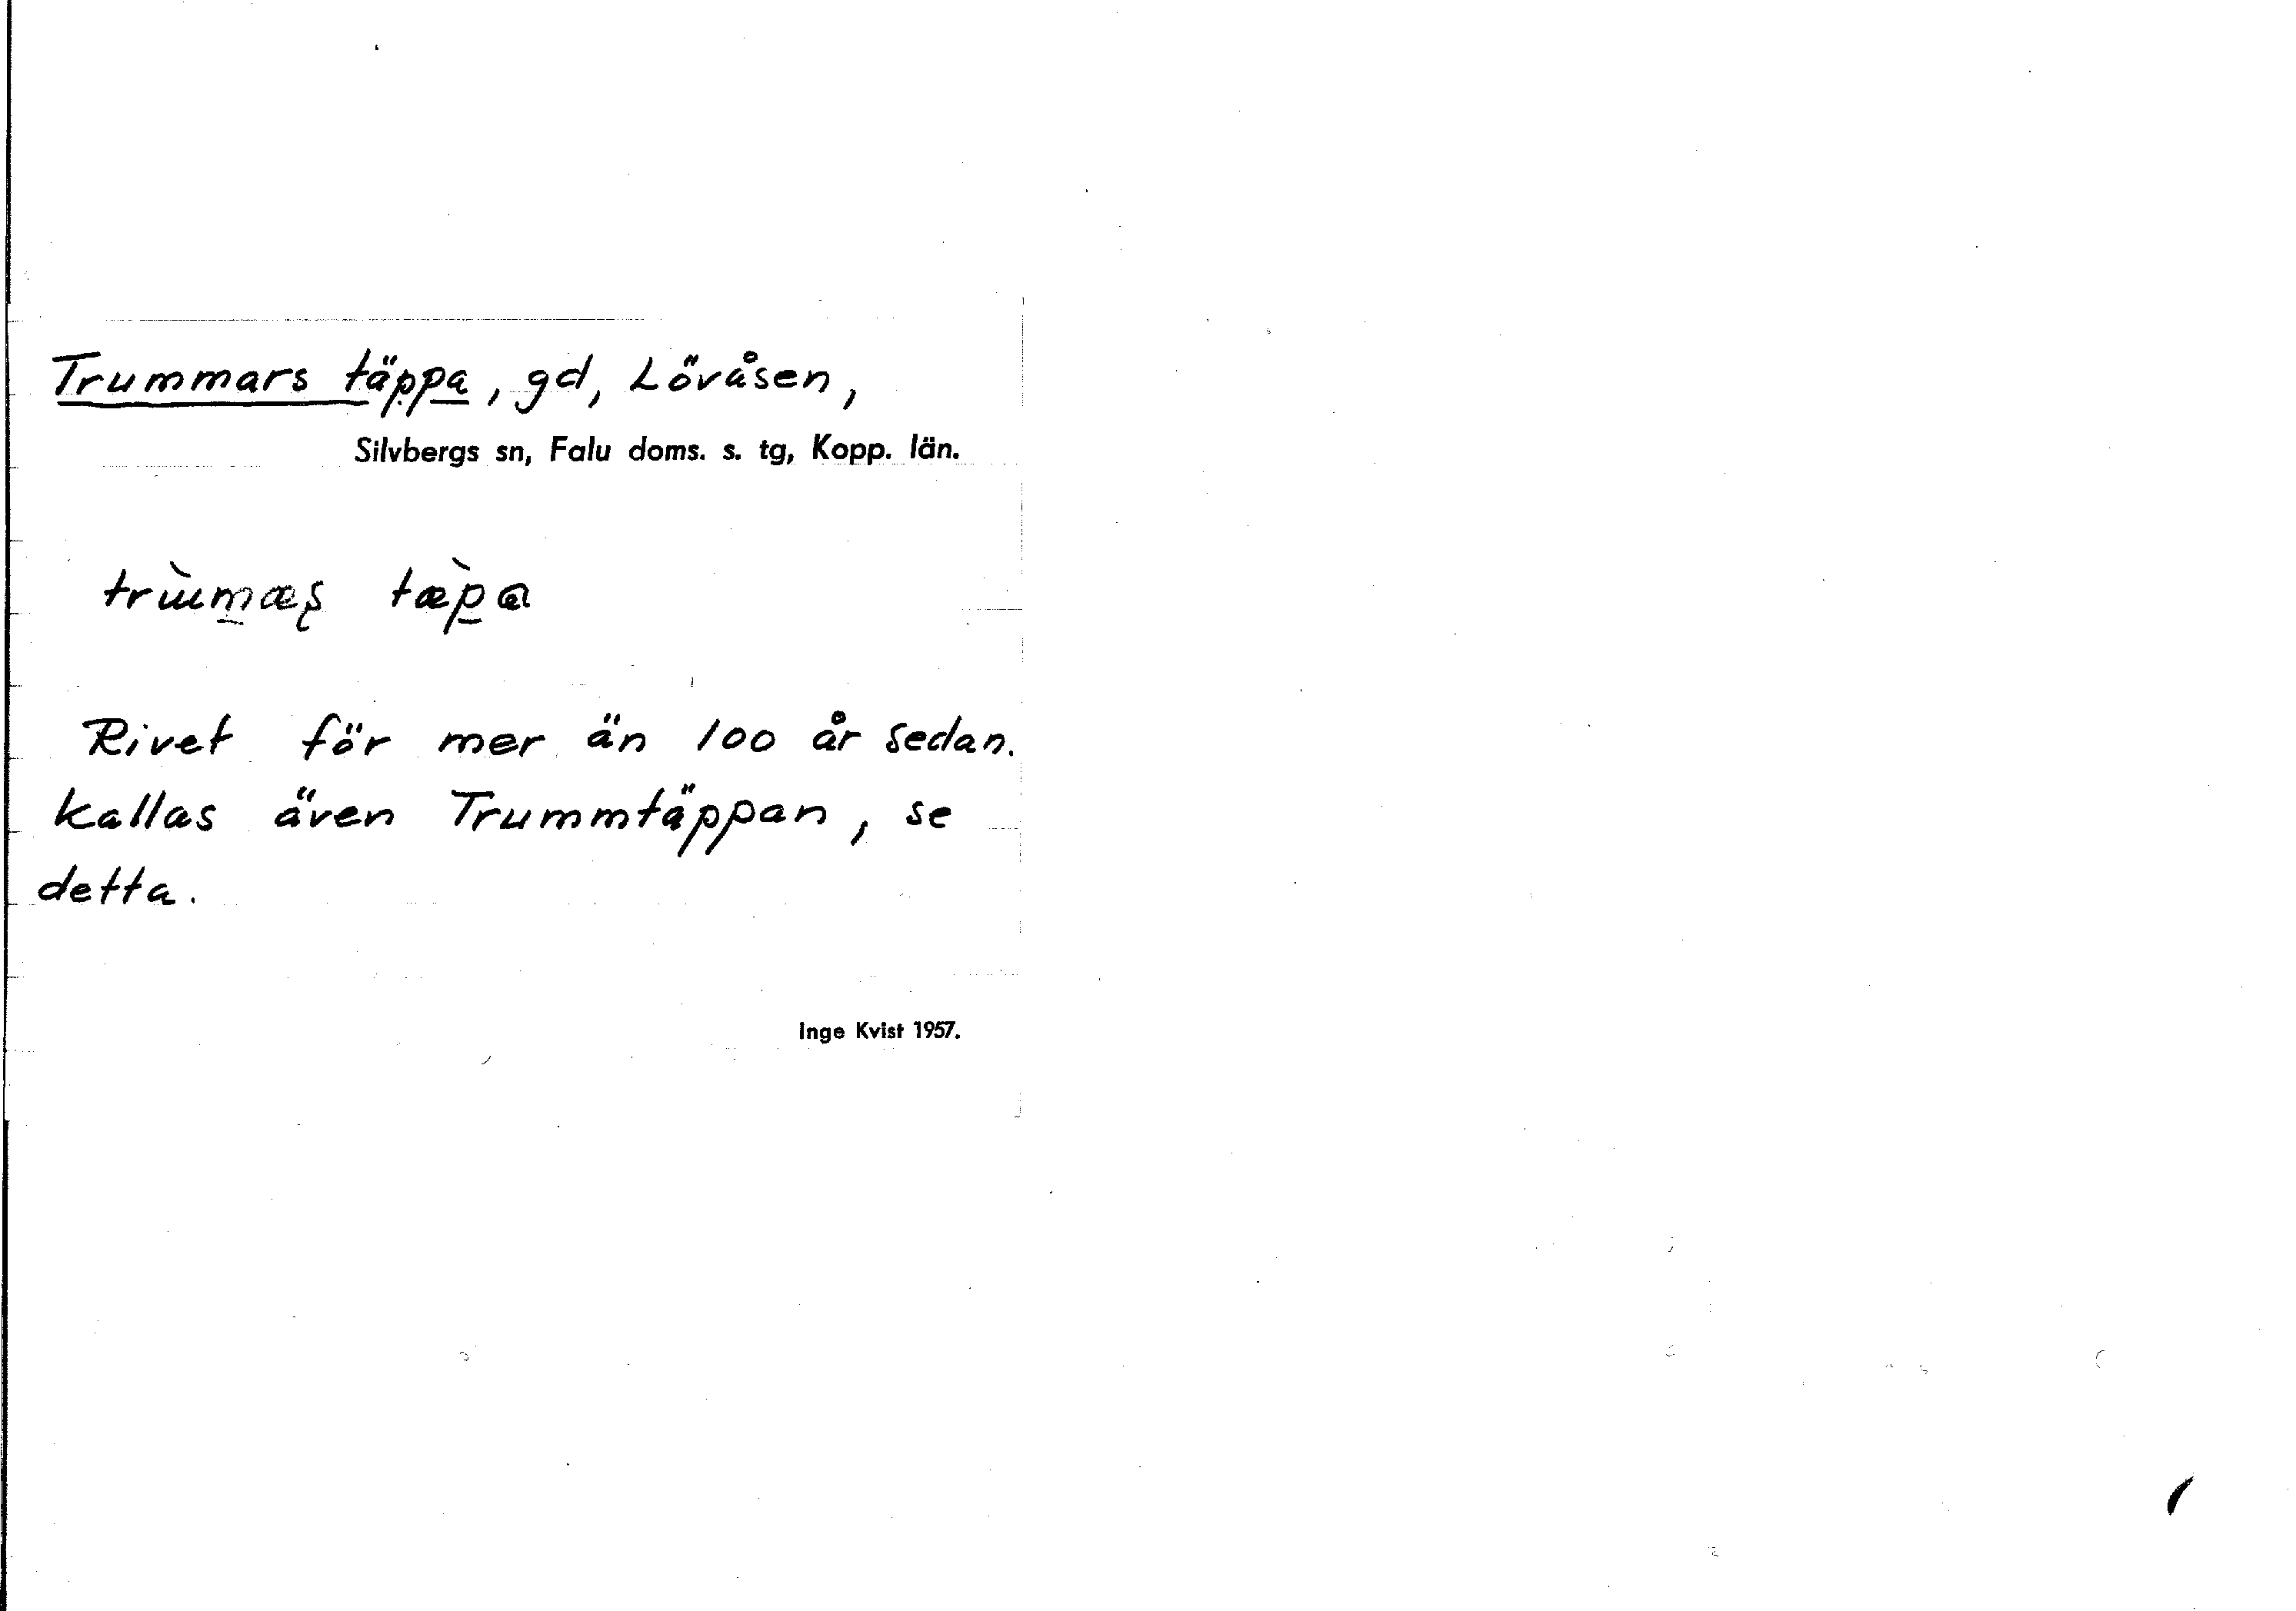 Trummars täppa, gd, Lövåsen,
Silvbergs sn, Falu doms. s. tg, Kopp. län.
tæ̀p̲a
Rivet för mer än 100 år sedan.
Kallas även Trummtäppan, se
detta.
Inge Kvist 1957.